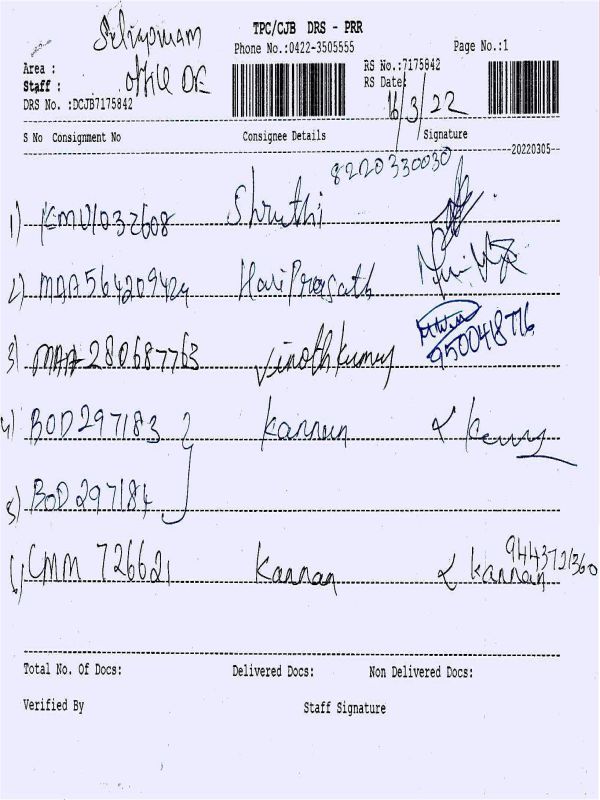 TPC/CJB DRS - PRR
Phone No.:0422-3505555
Page No.:1
Area :
Staff : office DE
DRS No. :DCJB7175842
RS No.:7175842
RS Date: 16/3/22
S No Consignment No Consignee Details Signature
20220305
8220330030
1) KMU1032608 Shruthi
2) MAA564209424 HariPrasath
3) MAA280687763 Vinothkumar
9500418776
4) BOD297183 Kannan
5) BOD297184
9443721360
6) CMM 726621 Kannan & Kannan
Total No. Of Docs: Delivered Docs: Non Delivered Docs:
Verified By Staff Signature